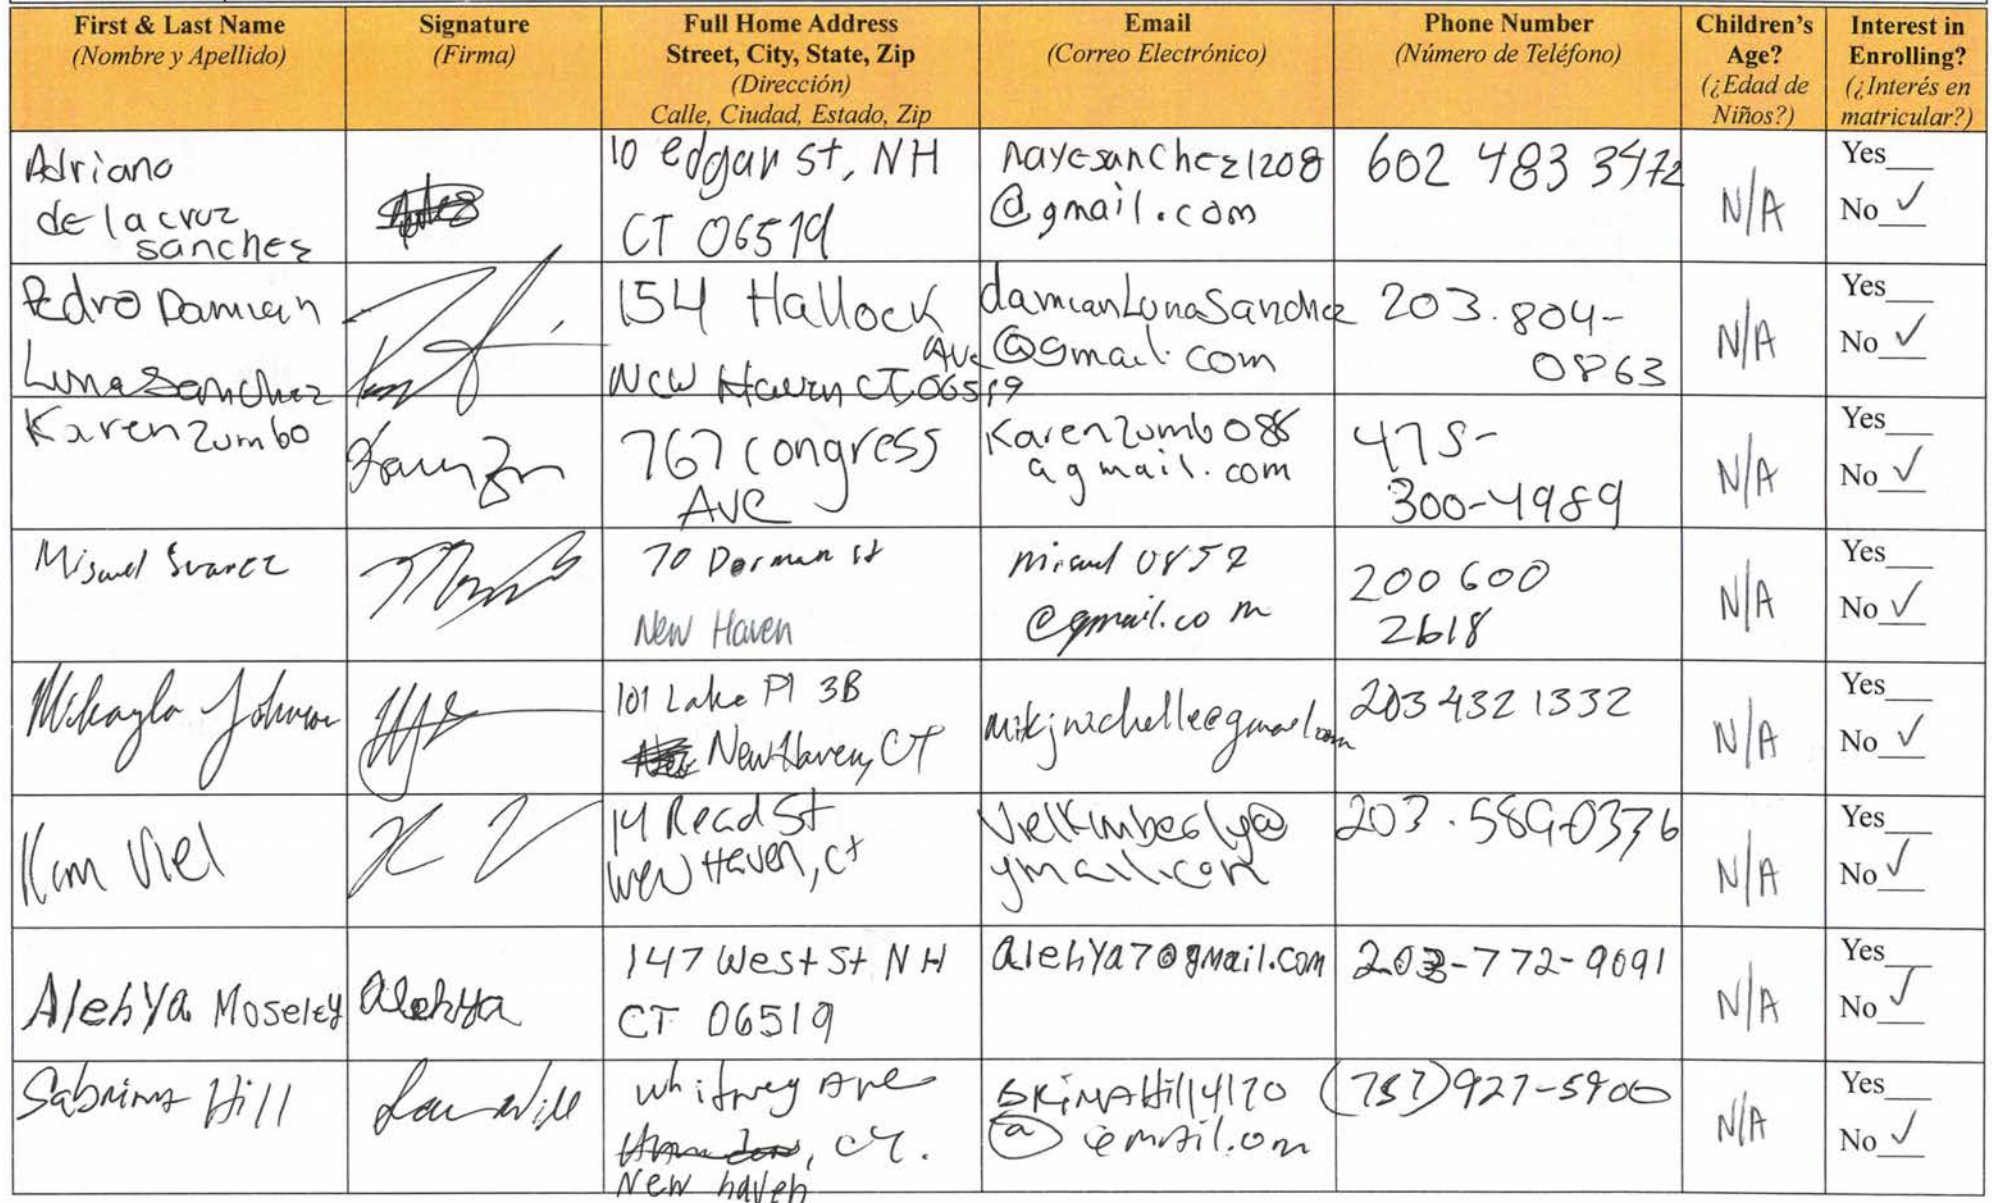 First & Last Name
(Nombre y Apellido)
Signature
(Firma)
Full Home Address
Street, City, State, Zip
(Dirección)
Calle, Ciudad, Estado, Zip
Email
(Correo Electrónico)
Phone Number
(Número de Teléfono)
Children's
Age?
(¿Edad de
Niños?)
Interest in
Enrolling?
(¿Interés en
matricular?)
Adriano
de la cruz
sanchez
10 edgar st, NH
CT 06519
nayesanchez1208
@gmail.com
602 483 3472
N/A
Yes
No ✓
Pedro Damian
Luna Sanchez
154 Hallock
Ave
New Haven CT, 06519
damianLunaSanchez
@gmail.com
203.804-
0863
N/A
Yes
No ✓
Karen Zumbo
767 Congress
Ave
Karenzumbo88
@gmail.com
475-
300-4989
N/A
Yes
No ✓
Miguel Suarez
70 Dorman st
New Haven
miguel0857
@gmail.com
200 600
2618
N/A
Yes
No ✓
Mikayla Johnson
101 Lake Pl 3B
New Haven, CT
@gmail.com
203 432 1332
N/A
Yes
No ✓
Kim Viel
14 Read St
New Haven, Ct
Vielkimberly@
ymail.com
203.589-0376
N/A
Yes
No ✓
AlehYa Moseley
alehya
147 West St NH
CT 06519
alehYa7@gmail.com
203-772-9091
N/A
Yes
No ✓
Sabrina Hill
Whitney Ave
, CT.
New haven
(757)927-5900
N/A
Yes
No ✓